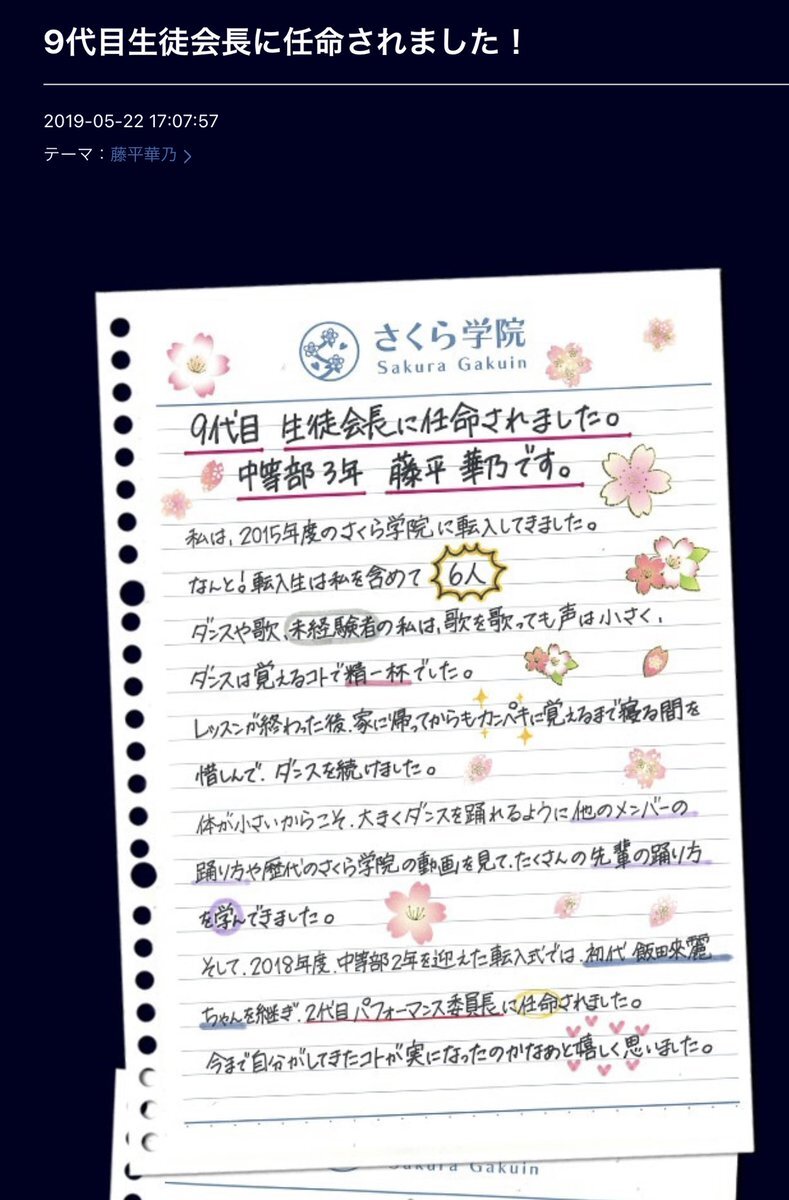 9代目生徒会長に任命されました！
2019-05-22 17:07:57
テーマ：藤平華乃 >
さくら学院
Sakura Gakuin
9代目 生徒会長に任命されました。
中等部3年 藤平 華乃です。
私は、2015年度のさくら学院に転入してきました。
なんと！転入生は私を含めて 6人
ダンスや歌、未経験者の私は、歌を歌っても声は小さく、
ダンスは覚えるコトで精一杯でした。
レッスンが終わった後、家に帰ってからもカンペキに覚えるまで寝る間を
惜しんで、ダンスを続けました。
体が小さいからこそ、大きくダンスを踊れるように他のメンバーの
踊り方や歴代のさくら学院の動画を見て、たくさんの先輩の踊り方
を学んできました。
そして、2018年度、中等部2年を迎えた転入式では、初代 飯田來麗
ちゃんを継ぎ、2代目パフォーマンス委員長に任命されました。
今まで自分がしてきたコトが実になったのかなぁと嬉しく思いました。
Sakura Gakuin